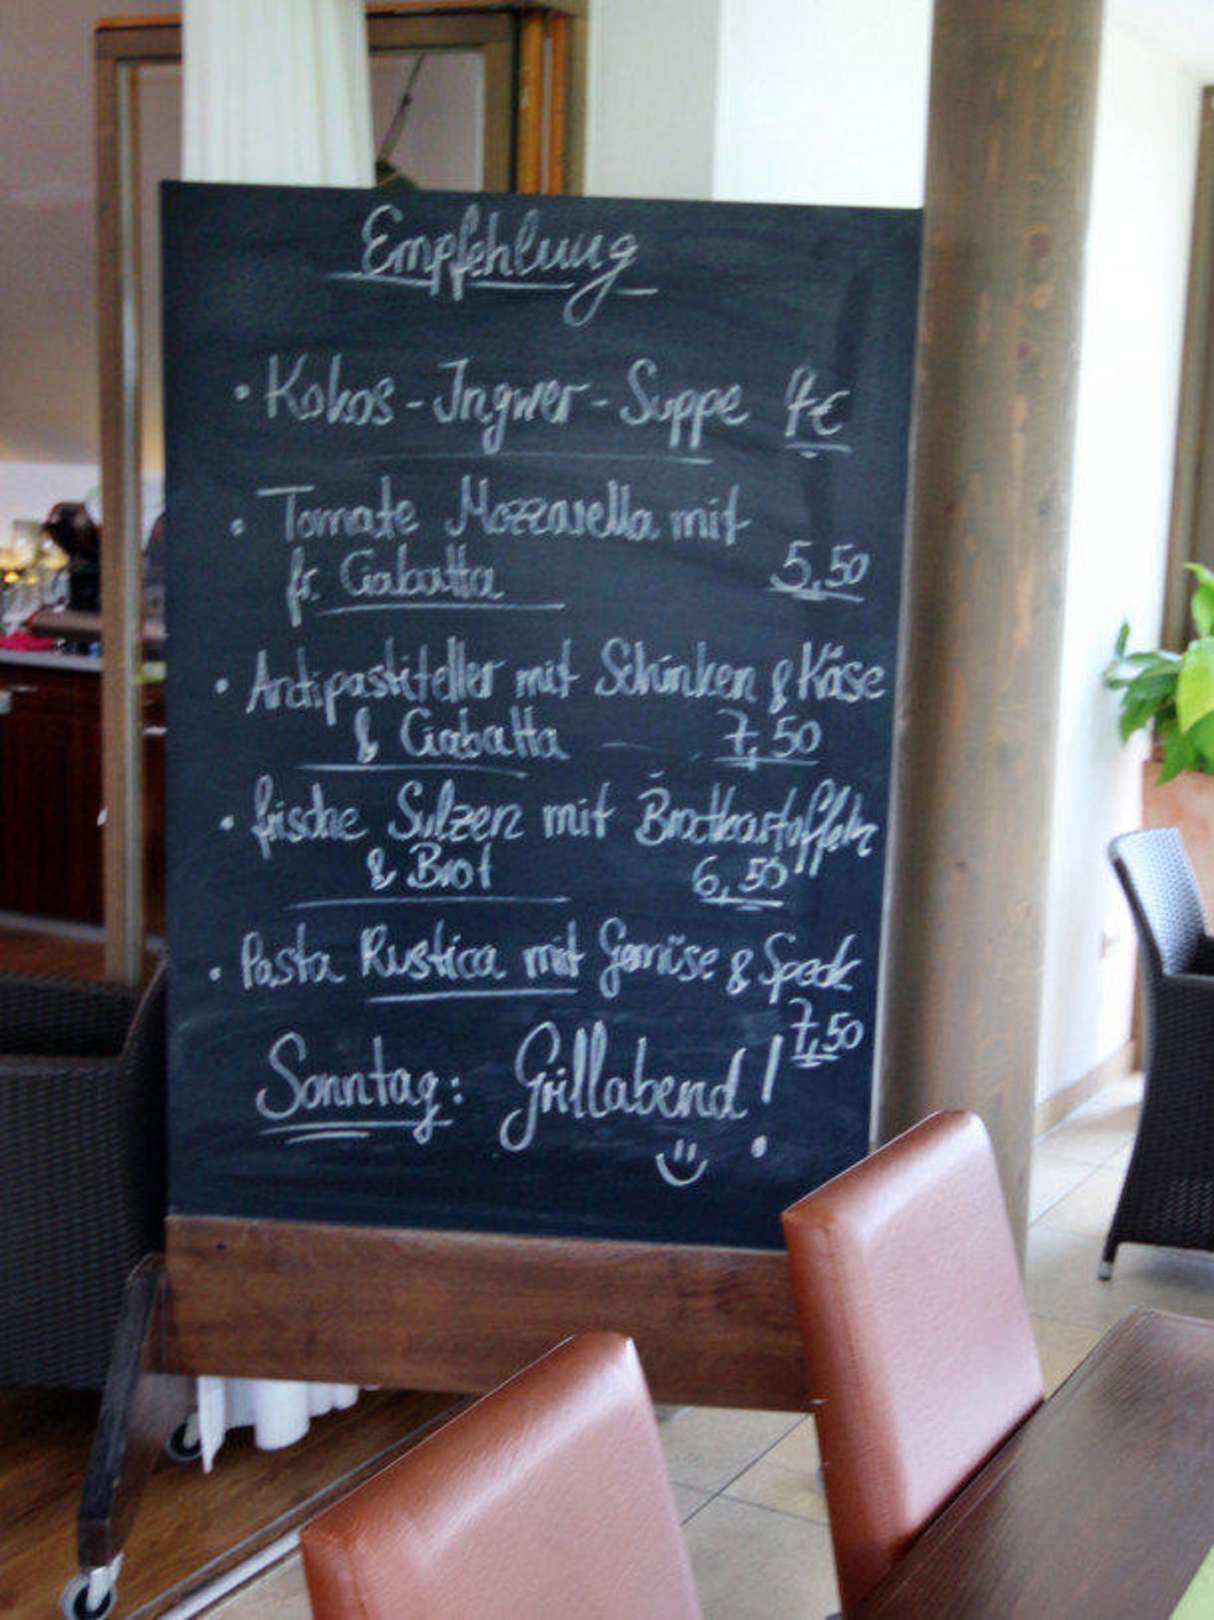 Empfehlung
• Kokos-Ingwer-Suppe 4€
• Tomate Mozzarella mit
fr. Ciabatta 5,50
• Antipastiteller mit Schinken & Käse
& Ciabatta 7,50
• frische Sülzen mit Bratkartoffeln
& Brot 6,50
• Pasta Rustica mit Gemüse & Speck
7,50
Sonntag: Grillabend!